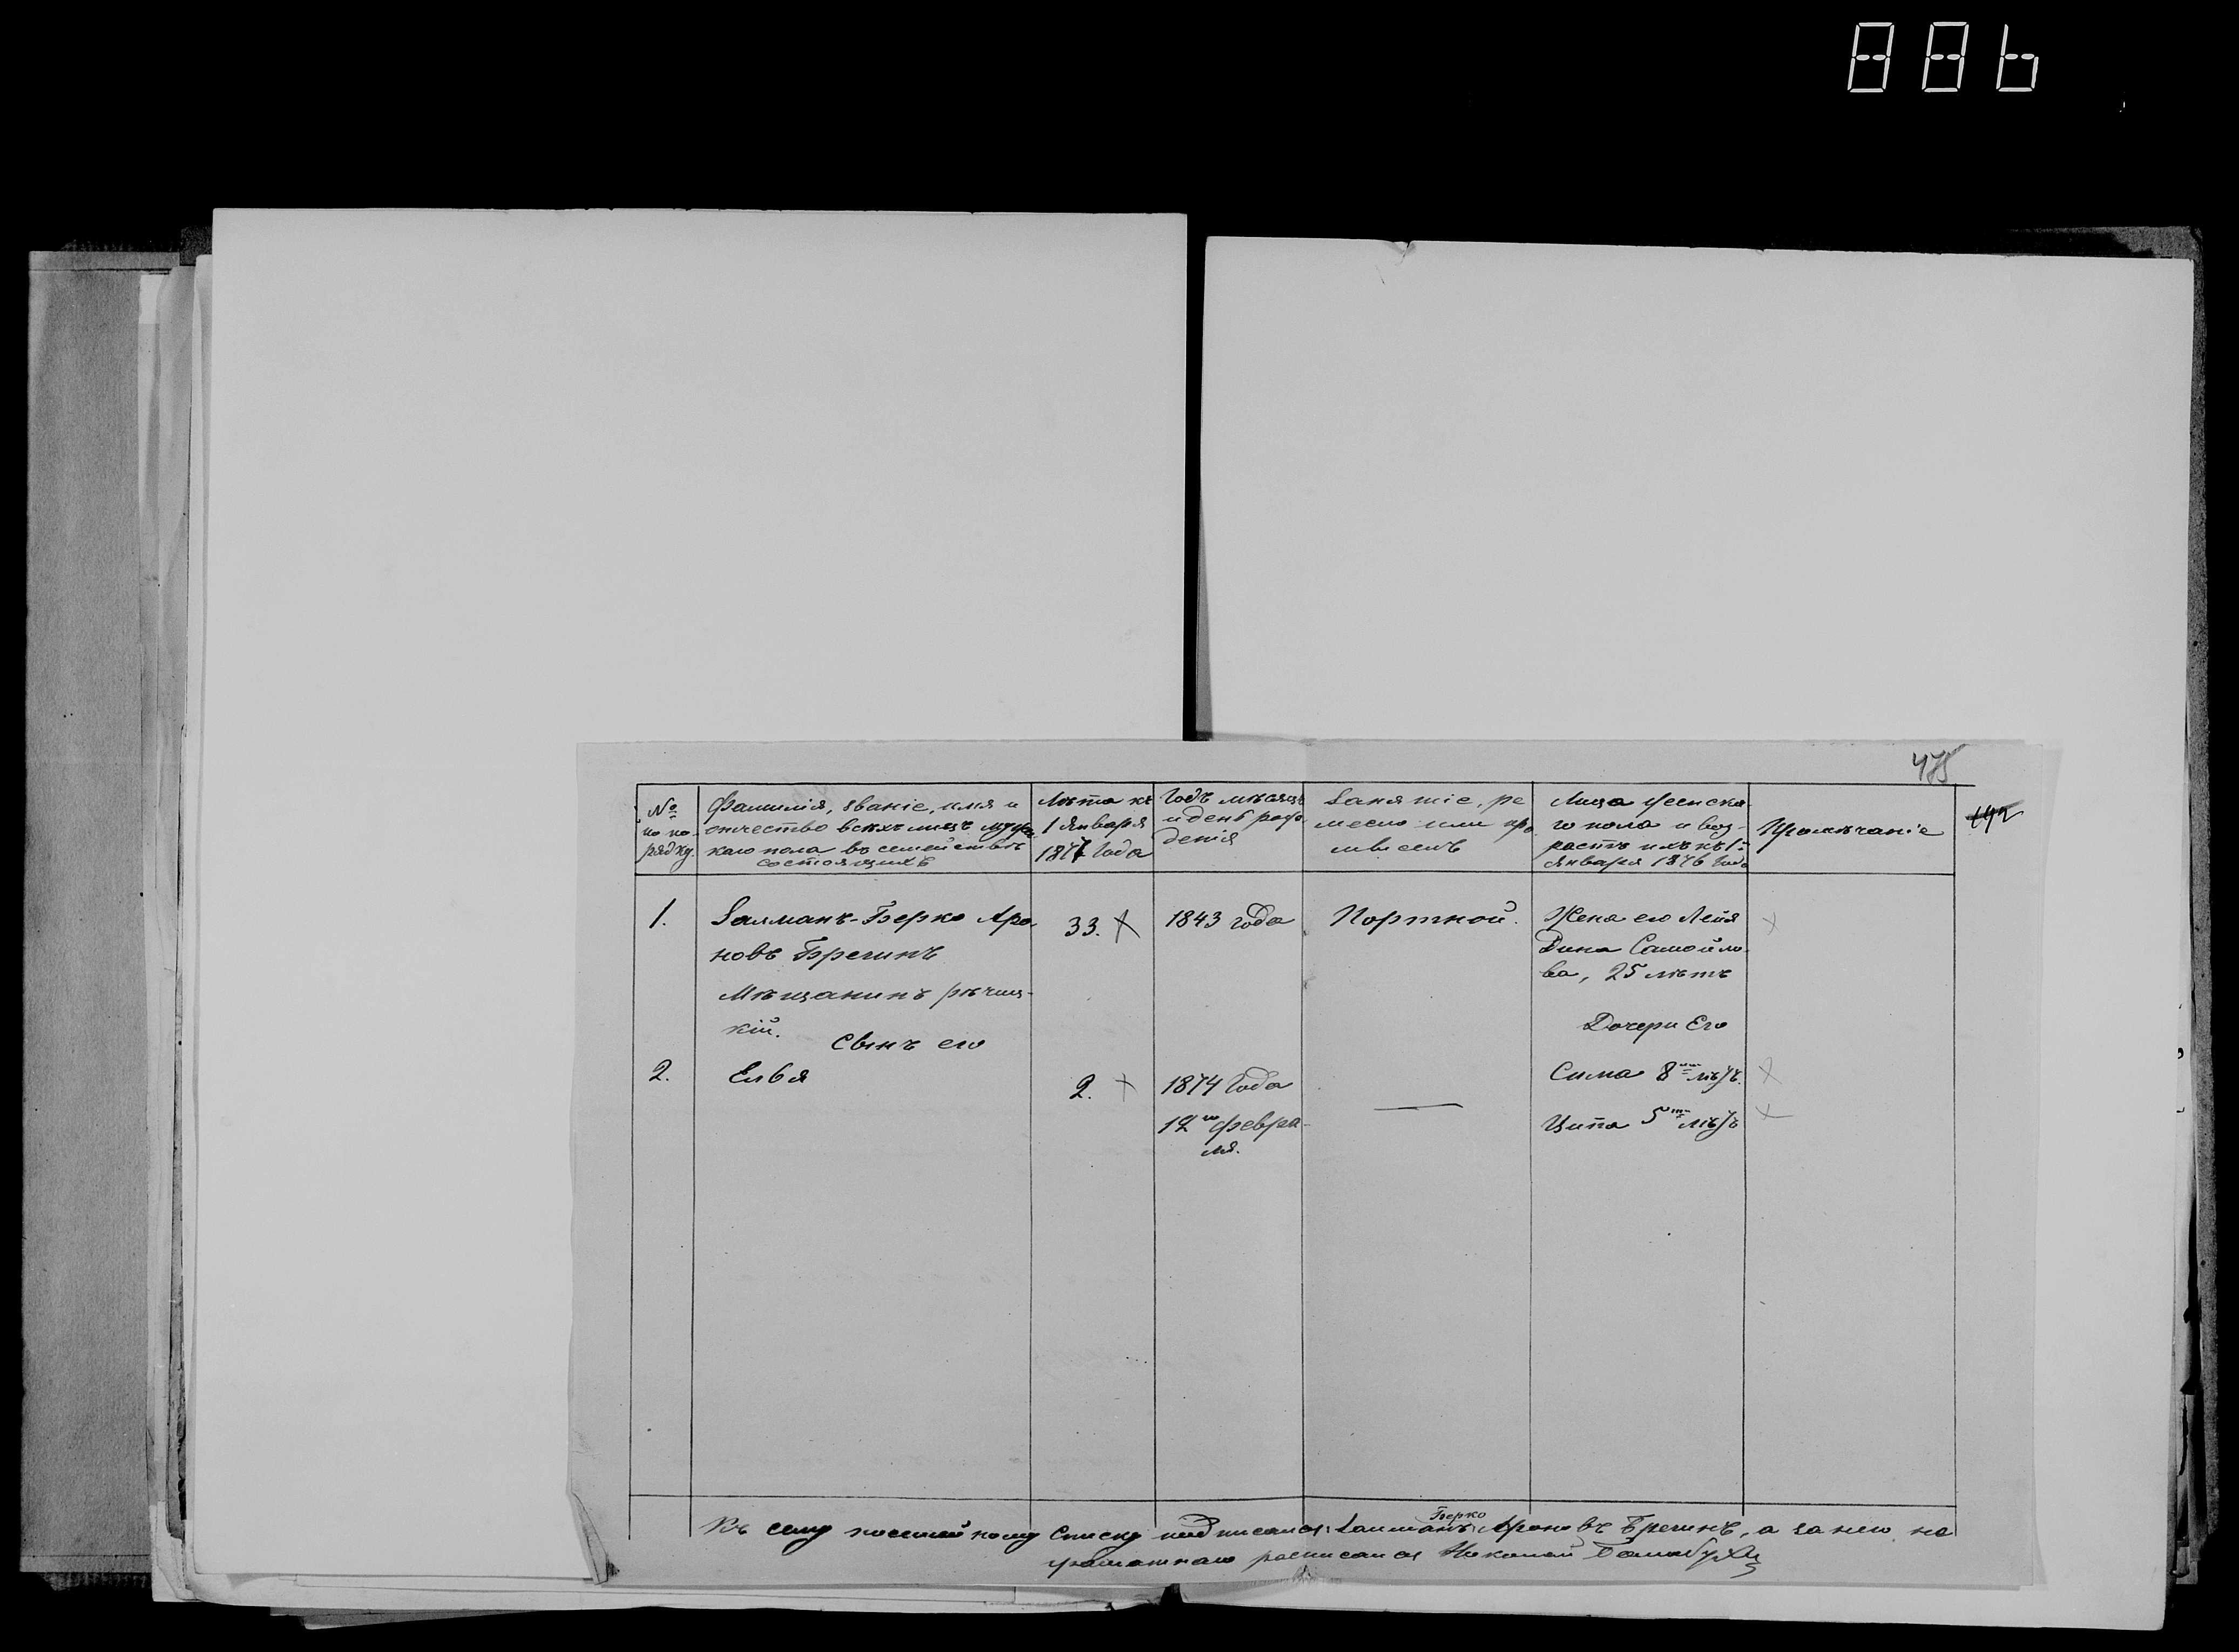 475
№ по по-
рядку.
Фамилія, званіе, имя и
отчество всѣхъ лицъ мужс-
каго пола въ семействѣ
состоящихъ
Лѣта къ
1 Января
1876 Года
Годъ мѣсяцъ
и день рож-
денія
Занятіе, ре
месло или про
мыселъ
Лица женска-
го пола и воз-
растъ ихъ къ 1-
Января 1876 Года
Примѣчаніе
1.
Залманъ-Берко Аро-
новъ Брегинъ
Мѣщанинъ рѣчиц-
кій.
33.
1843 года
Портной.
Жена его Лейя
Дина Самойло-
ва, 25 лѣтъ
Сынъ его
Дочери Его
2.
Елья
2.
1874 Года
12го февра-
ля.
—
Сима 8ми лѣтъ.
Ципа 5ти лѣтъ
Къ сему посемейному Списку подписался: Залманъ Берко Ароновъ Брегинъ, а за него не
грамотнаго росписался Николай